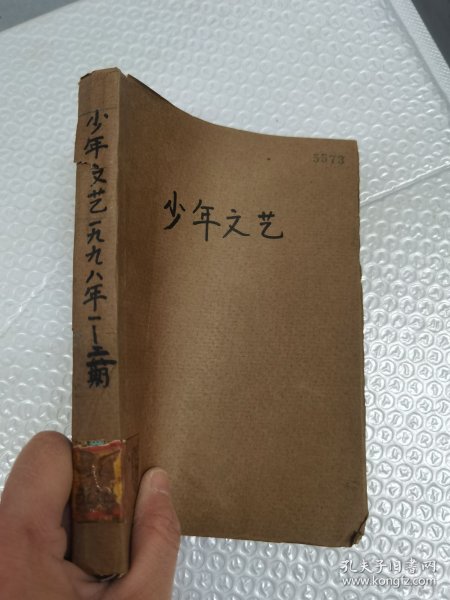 少年文艺一九九八年一—三期
5573
少年文艺
孔夫子旧书网
www.kongfz.com